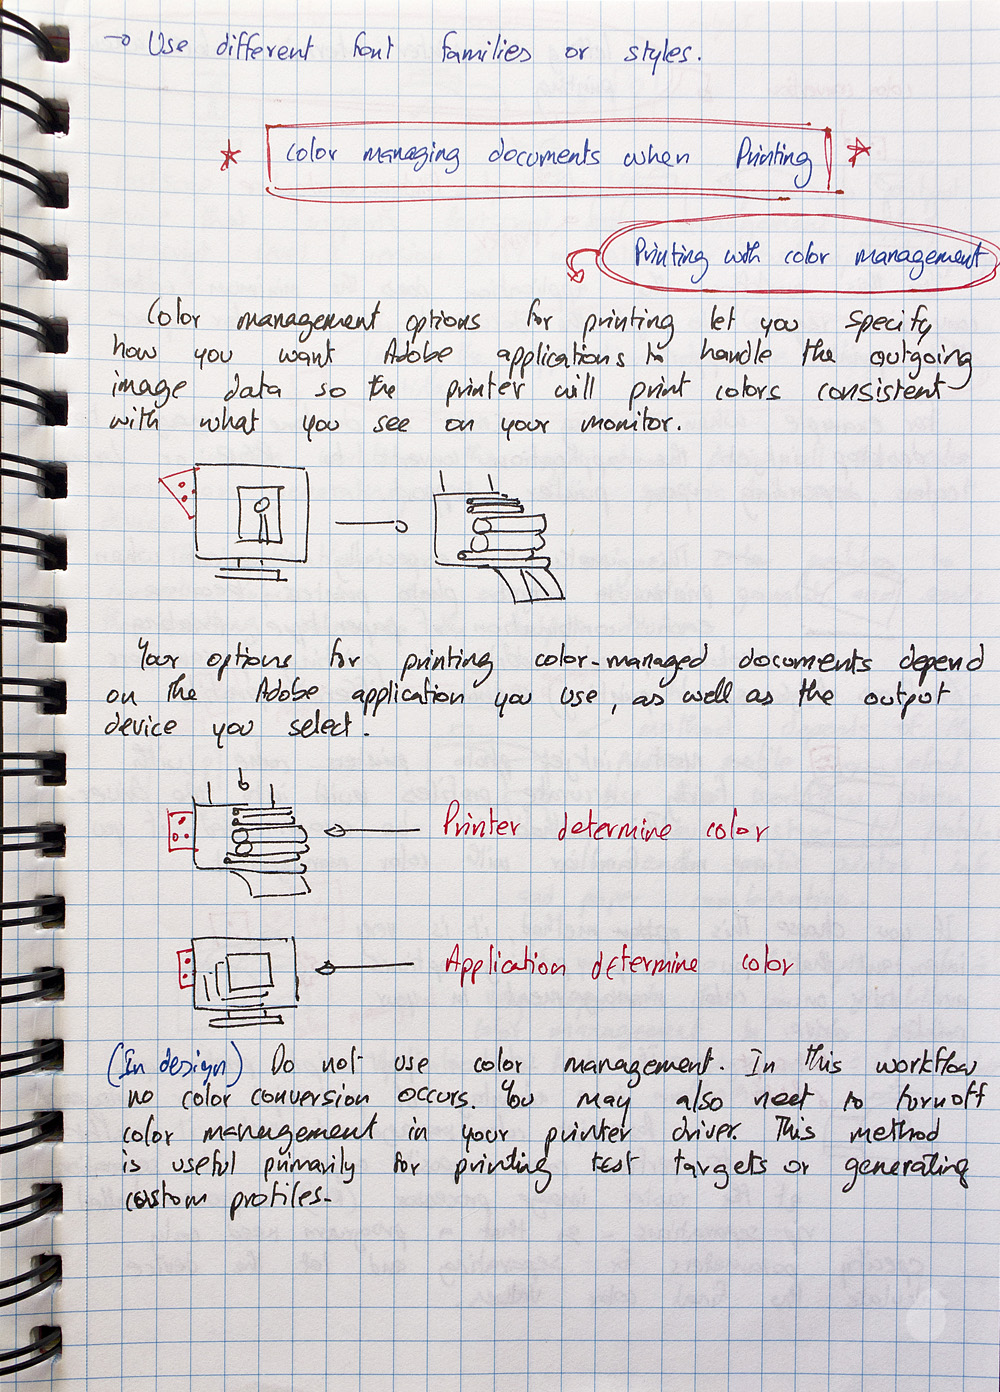 → Use different font families or styles.
* Color managing documents when Printing *
Printing with color management
Color management options for printing let you specify
how you want Adobe applications to handle the outgoing
image data so the printer will print colors consistent
with what you see on your monitor.
Your options for printing color-managed documents depend
on the Adobe application you use, as well as the output
device you select.
Printer determine color
Application determine color
(In design) Do not use color management. In this workflow
no color conversion occurs. You may also neet to turn off
color management in your printer driver. This method
is useful primarily for printing test targets or generating
custom profiles.